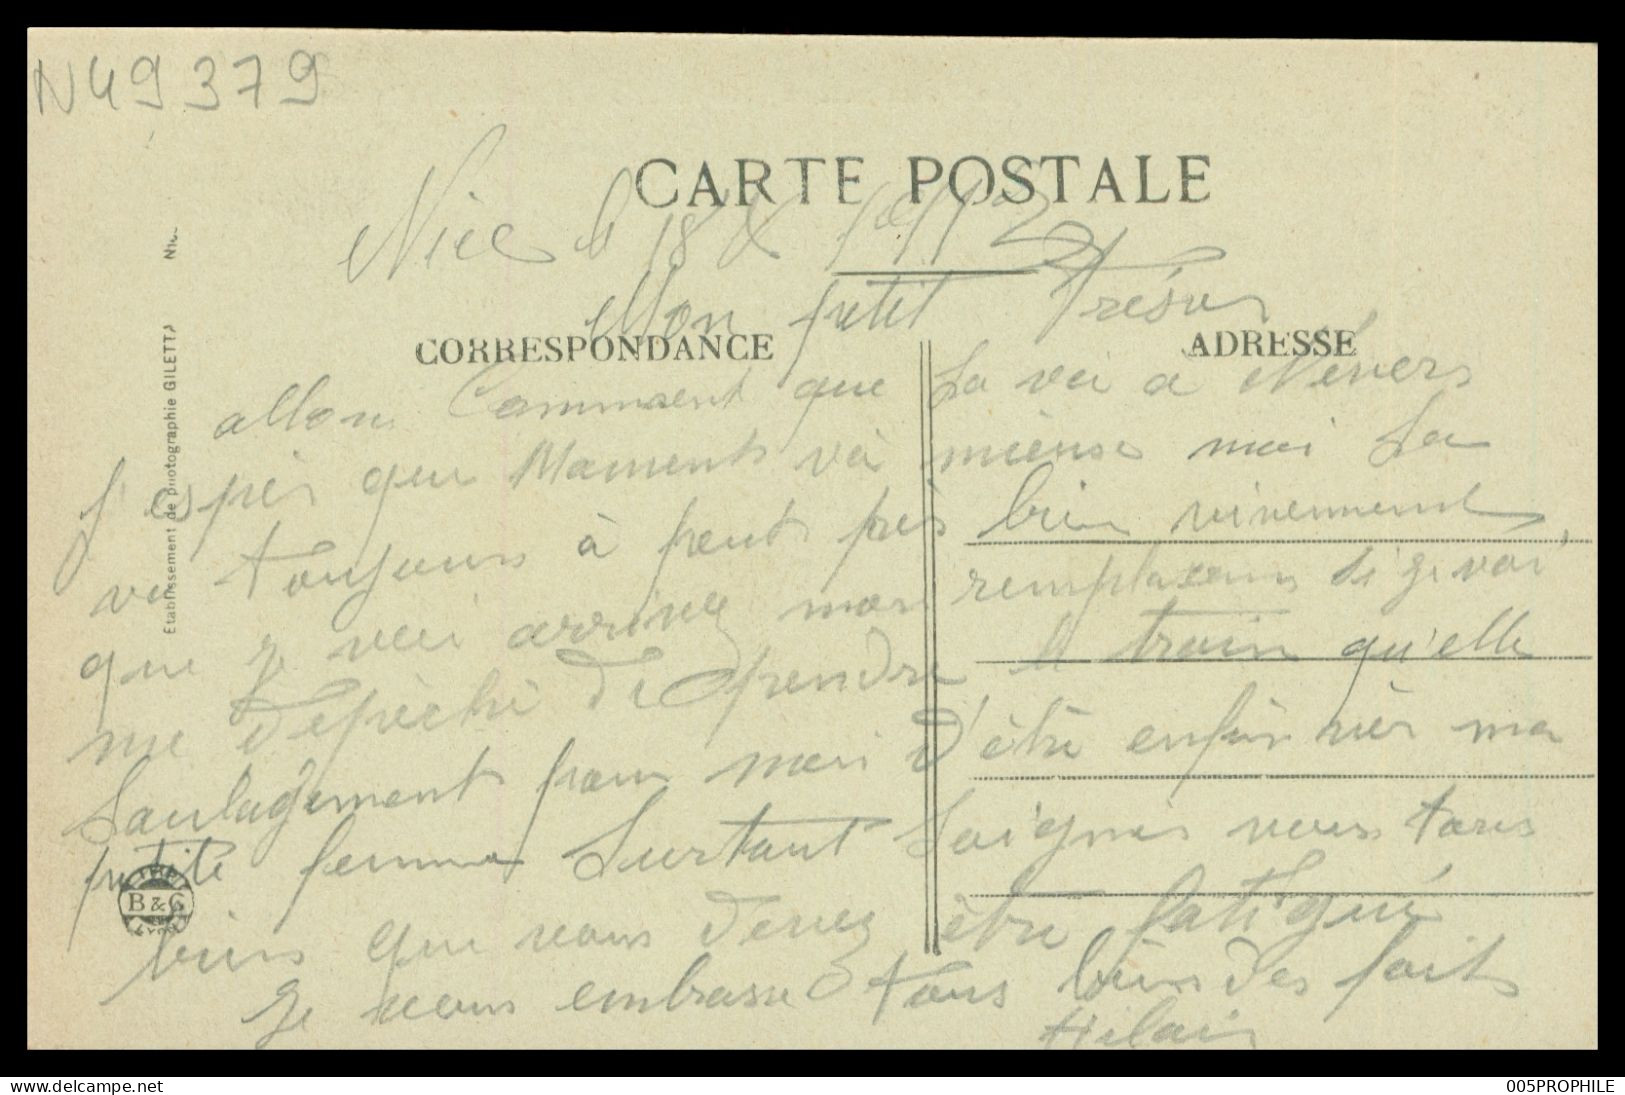 N49379
CARTE POSTALE
Nice le 18
Mon petit Trésor
CORRESPONDANCE
ADRESSE
allons Comment que Sa va à Nevers
J'espèr que Maments và mieus moi Sa
va toujours à peut près bien vivement
que je voi arrivez mon remplacens si je voi
me depeché de prendre le train qu'elle
Soulagement pour moi d'êtrè enfin près ma
petite femme Surtout Soignes vous tous
biens que vous devez êtrè fatigué
Je vous embrasse tous biens des fois
Hilair
Etablissement de photographie GILETTA Nice
B & G
delcampe.net
005PROPHILE